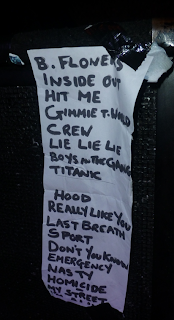 B. FLOWERS
INSIDE OUT
HIT ME
GIMMIE T. WORLD
CREW
LIE LIE LIE
BOYS IN THE GANG
TITANIC
HOOD
REALLY LIKE YOU
LAST BREATH
SPORT
DON'T YOU KNOW
EMERGENCY
NASTY
HOMICIDE
MY STREET